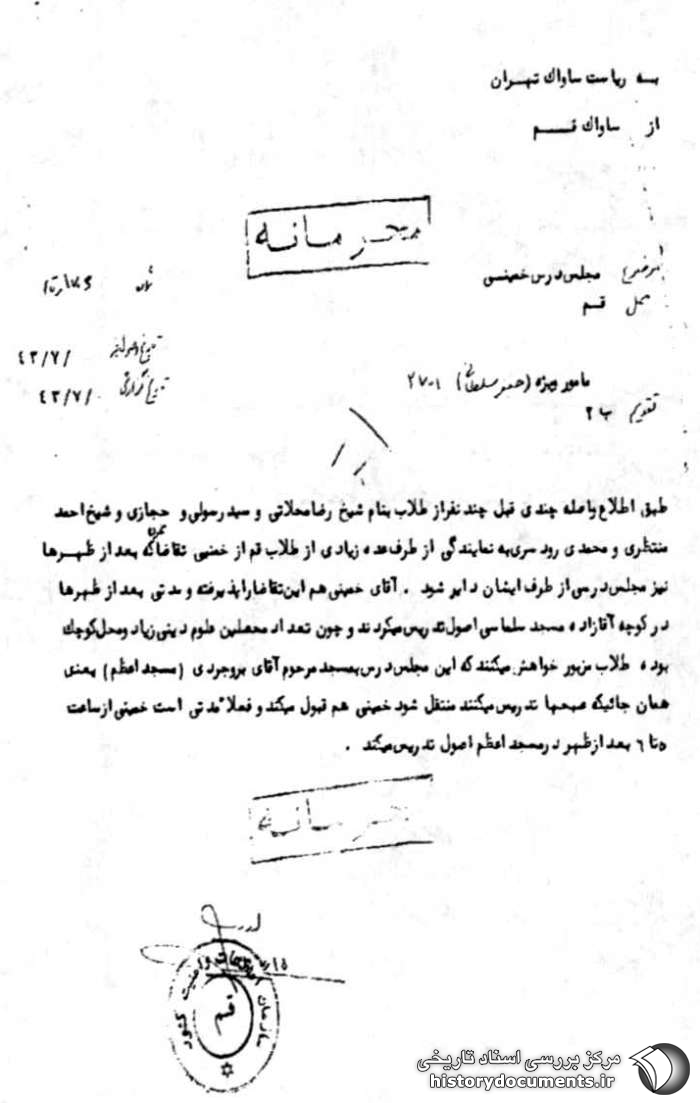 به ریاست ساواک تهران
از ساواک قم
محرمانه
موضوع مجلس درس خمینی
محل قم
تاریخ
۴۳/۷/
تاریخ گزارش ۴۳/۷/
مامور ویژه (جعفر سلطانی) ۲۷۰۱
تقویم ب ۲
طبق اطلاع واصله چندی قبل چند نفر از طلاب بنام شیخ رضا محلاتی و سید رسولی و حجازی و شیخ احمد
منتظری و محمدی رودسری به نمایندگی از طرف عده زیادی از طلاب قم از خمینی تقاضا که بعد از ظهرها
نیز مجلس درسی از طرف ایشان دایر شود . آقای خمینی هم این تقاضا را پذیرفته و مدتی بعد از ظهرها
در کوچه آقازاده مسجد سلماسی اصول تدریس میکردند و چون تعداد محصلین علوم دینی زیاد و محل کوچک
بوده طلاب مزبور خواهش میکنند که این مجلس درس بمسجد مرحوم آقای بروجردی (مسجد اعظم) یعنی
همان جائیکه صبحها تدریس میکنند منتقل شود خمینی هم قبول میکند و فعلا مدتی است خمینی از ساعت
۵ تا ۶ بعد از ظهر در مسجد اعظم اصول تدریس میکند .
محرمانه
سازمان اطلاعات و امنیت کشور
قم
مرکز بررسی اسناد تاریخی
historydocuments.ir